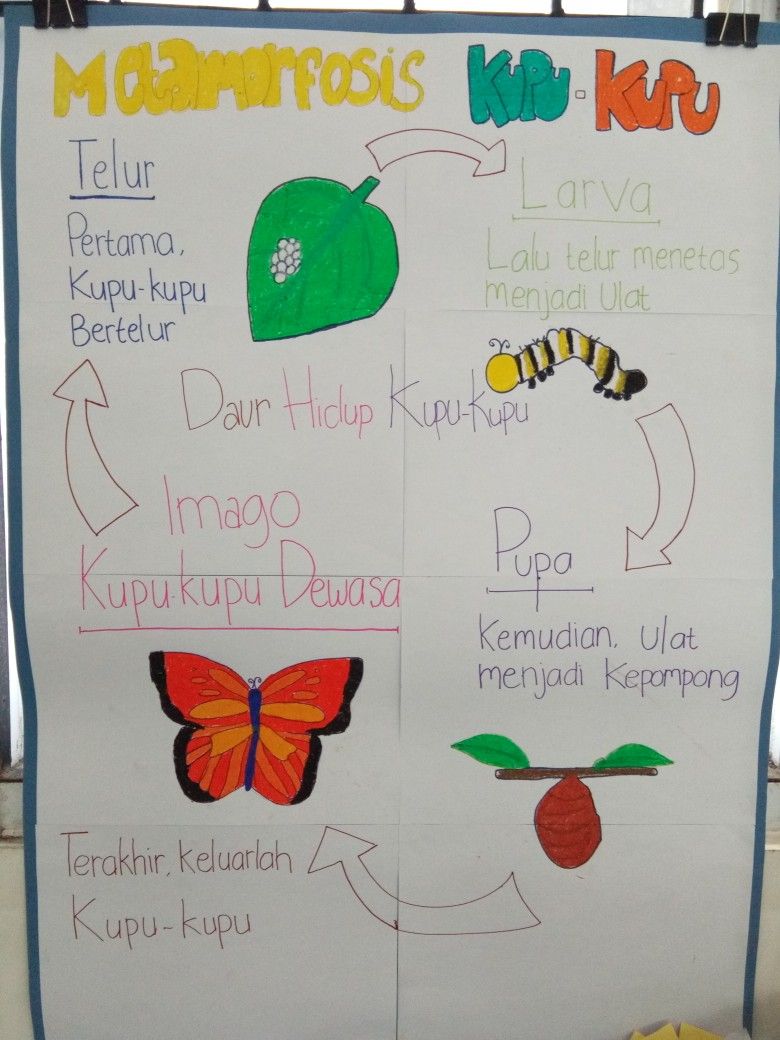 Metamorfosis Kupu-Kupu
Telur
Pertama,
Kupu-kupu
Bertelur
Larva
Lalu telur menetas
menjadi Ulat
Daur Hidup Kupu-Kupu
Pupa
Kemudian, Ulat
menjadi Kepompong
Imago
Kupu-kupu Dewasa
Terakhir, keluarlah
Kupu-kupu